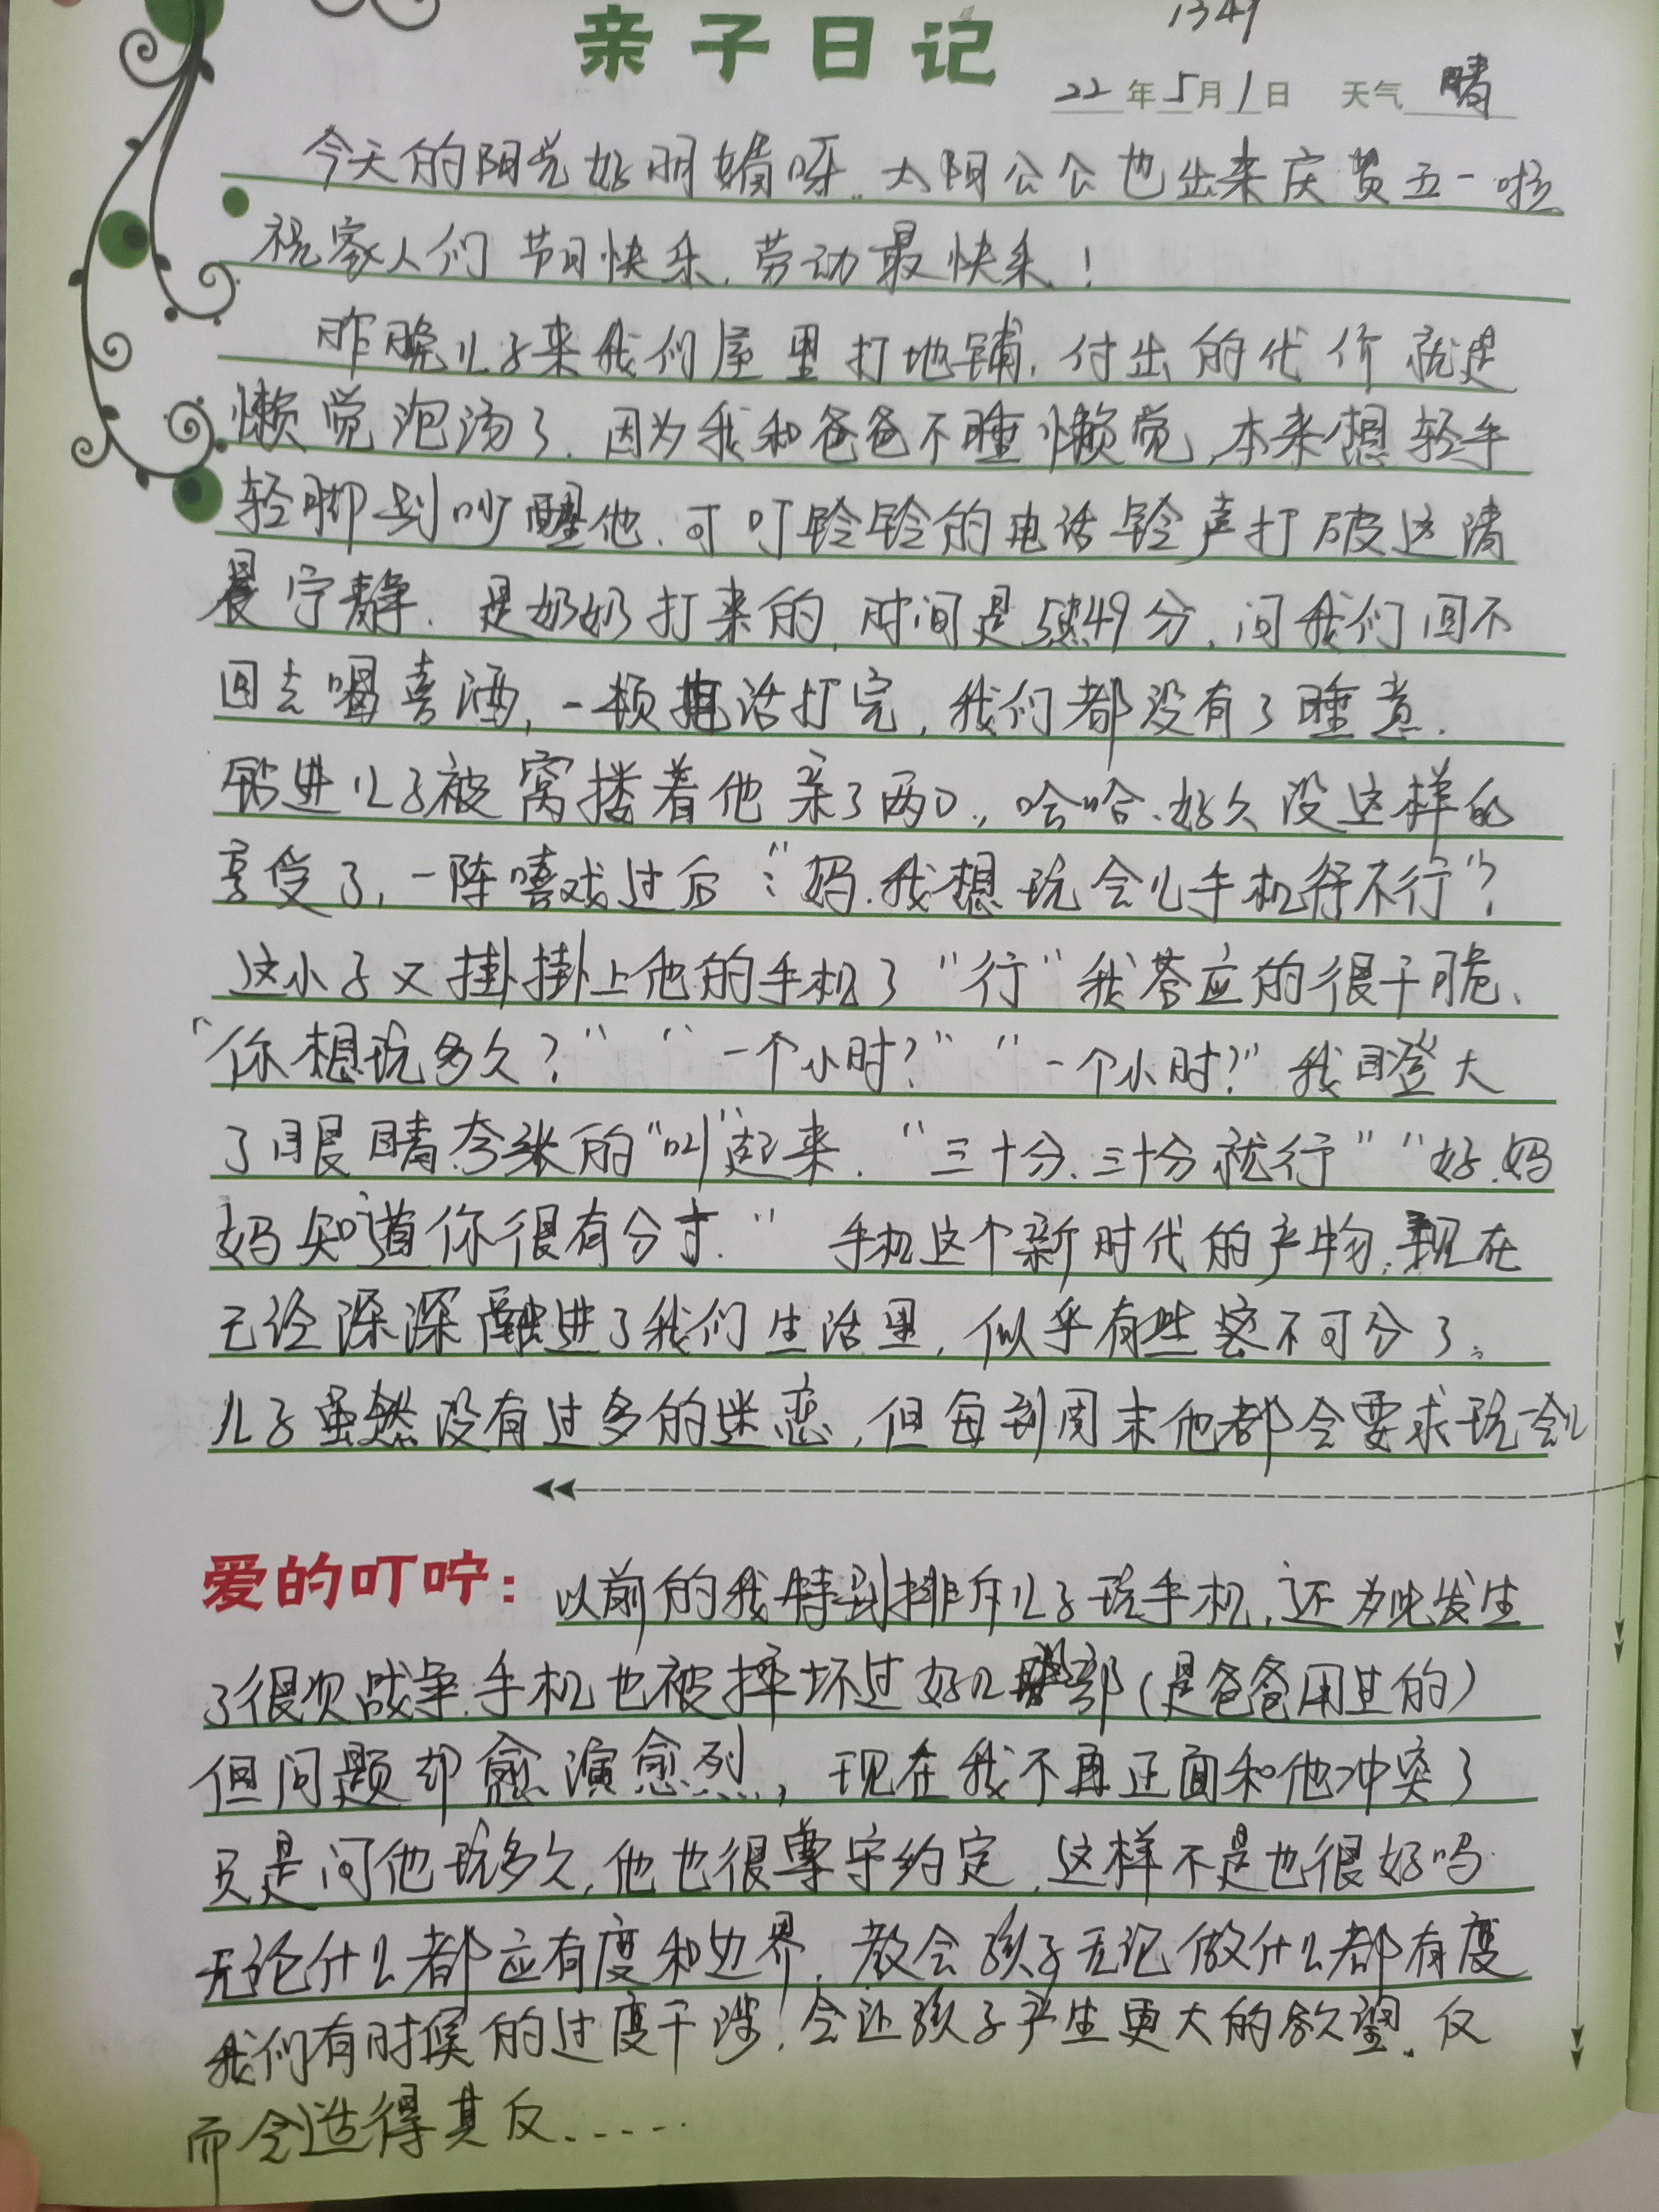 1349
亲子日记
22年5月1日 天气 晴
今天的阳光好明媚呀。太阳公公也出来庆贺五一啦
祝家人们节日快乐,劳动最快乐!
昨晚儿子来我们屋里打地铺,付出的代价就是
懒觉泡汤了。因为我和爸爸不睡懒觉,本来想轻手
轻脚别吵醒他,可叮铃铃的电话铃声打破这清
晨宁静。是奶奶打来的,时间是5点49分,问我们回不
回去喝喜酒,一顿电话打完,我们都没有了睡意.
钻进儿子被窝搂着他亲了两口,哈哈、好久没这样的
享受了,一阵嘻戏过后:“妈.我想玩会儿手机行不行”?
这小子又挂挂上他的手机了“行”我答应的很干脆、
“你想玩多久?”“一个小时?”“一个小时?”我瞪大
了眼睛夸张的“叫”起来.“三十分、三十分就行”“好.妈
妈知道你很有分寸.”手机这个新时代的产物,现在
已经深深融进了我们生活里,似乎有些密不可分了。
儿子虽然没有过多的迷恋,但每到周末他都会要求玩一会儿
爱的叮咛:以前的我特别排斥儿子玩手机,还为此发生
了很次战争.手机也被摔坏过好几部(是爸爸用过的)
但问题却愈演愈烈,现在我不再正面和他冲突了
只是问他玩多久,他也很尊守约定,这样不是也很好吗.
无论什么都应有度和边界.教会孩子无论做什么都有度
我们有时候的过度干涉,会让孩子产生更大的欲望.反
而会适得其反......